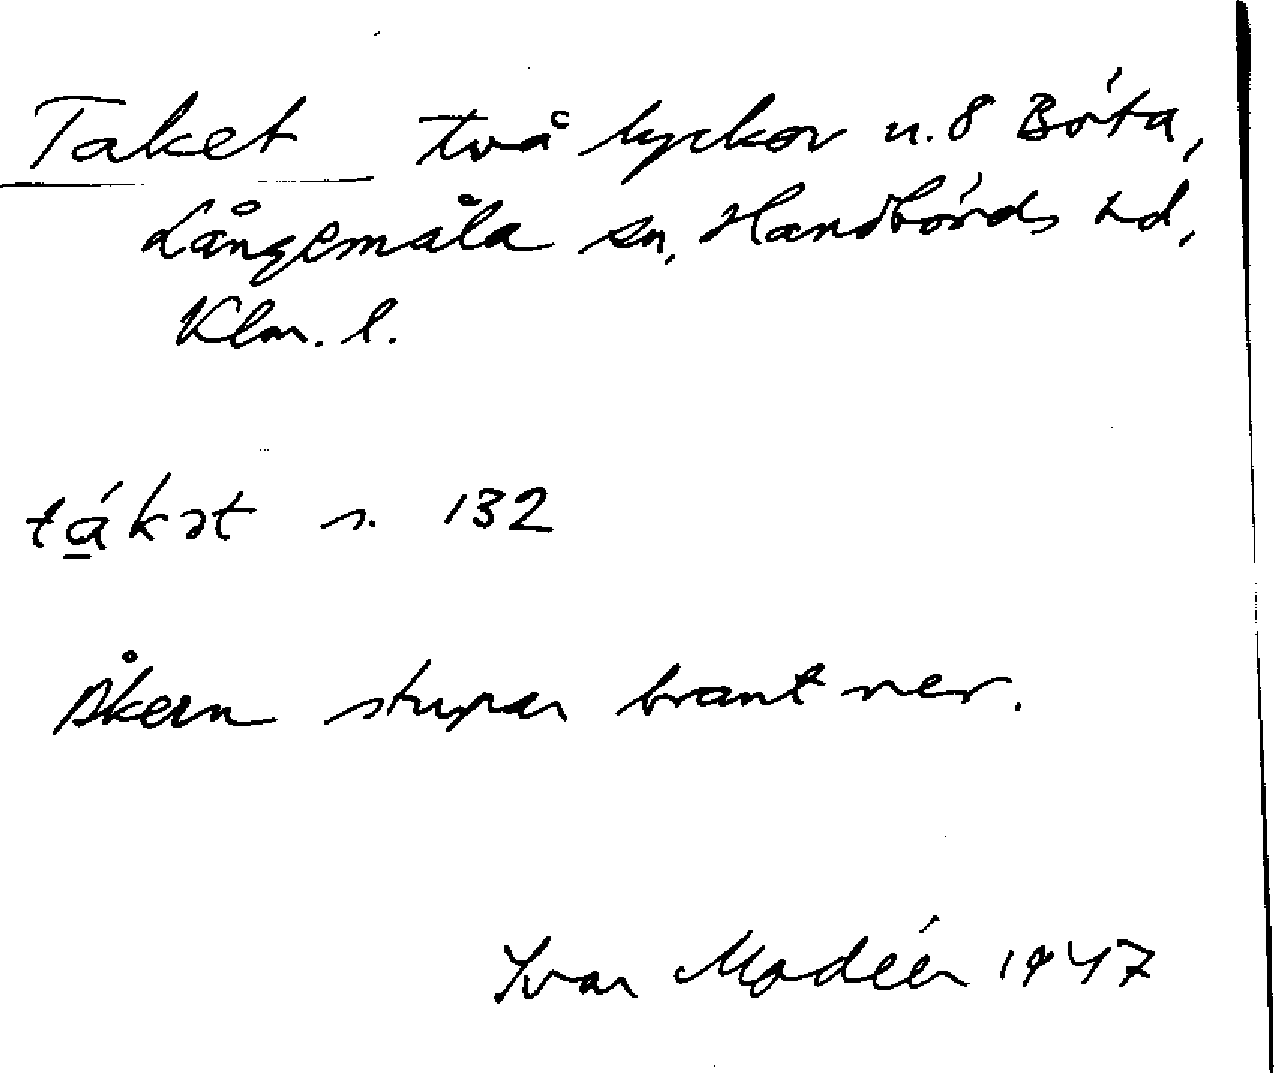 Taket två lyckor u. 8 Böta,
Långemåla sn, Handbörds hd,
Klm. l.
tákət s. 132
Åkern stupar brant ner.
Ivar Modéer 1947